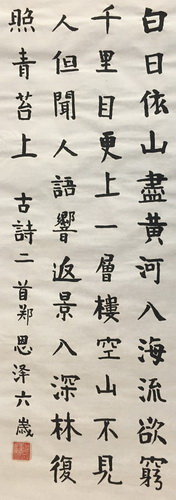 白日依山盡黃河入海流欲窮
千里目更上一層樓空山不見
人但聞人語響返景入深林復
照青苔上 古詩二首郑思泽六歲